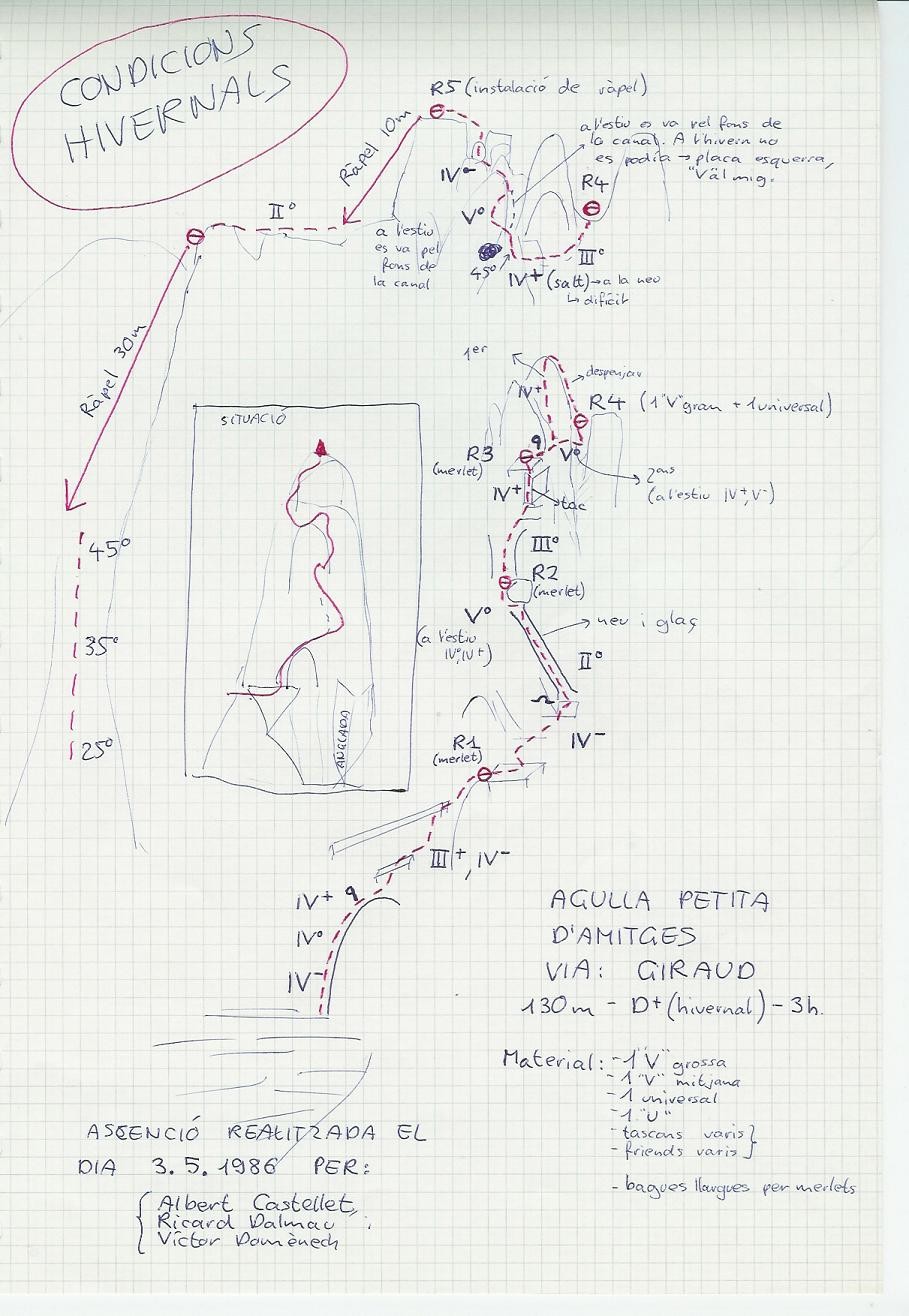 CONDICIONS
HIVERNALS
R5 (instalació de ràpel)
Ràpel 10m
a l'estiu es va pel fons de
la canal. A l'hivern no
es podia → placa esquerra,
mig.
R4
IVº
Vº
45º
IV+ (salt) → a la neu
↳ difícil
IIIº
IIº
a l'estiu
es va pel
fons de
la canal
Ràpel 30m
45º
35º
25º
SITUACIÓ
ANGLADA
1er
IV+
despenjar
R4 (1"V" gran + 1 universal)
R3
(merlet)
Vº
2ons
(a l'estiu IV+, V-)
IV+
tac
IIIº
R2
(merlet)
Vº
(a l'estiu
IVº, IV+)
neu i glaç
IIº
IV-
R1
(merlet)
III+, IV-
IV+
IVº
IV-
AGULLA PETITA
D'AMITGES
VIA: GIRAUD
130m - D+ (hivernal) - 3h.
Material: - 1"V" grossa
- 1"V" mitjana
- 1 universal
- 1"U"
- tascons varis
- friends varis
- bagues llargues per merlets
ASCENCIÓ REALITZADA EL
DIA 3.5.1986 PER:
Albert Castellet,
Ricard Dalmau i
Víctor Domènech